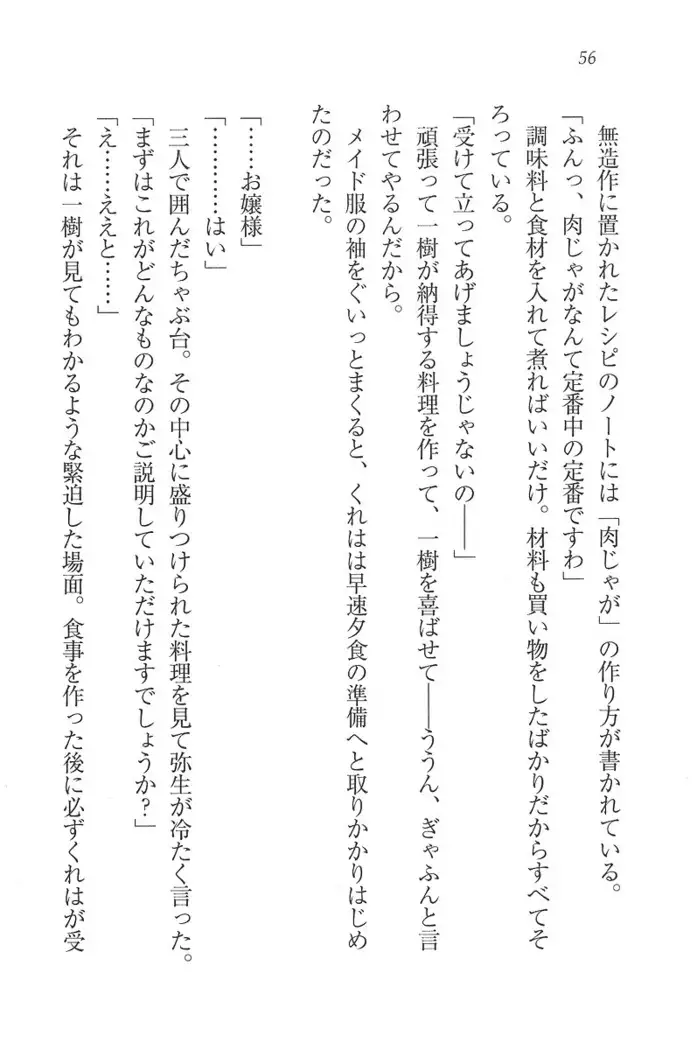 56
無造作に置かれたレシピのノートには「肉じゃが」の作り方が書かれている。
「ふんっ、肉じゃがなんて定番中の定番ですわ」
調味料と食材を入れて煮ればいいだけ。材料も買い物をしたばかりだからすべてそ
ろっている。
「受けて立ってあげましょうじゃないの――」
頑張って一樹が納得する料理を作って、一樹を喜ばせて――ううん、ぎゃふんと言
わせてやるんだから。
メイド服の袖をぐいっとまくると、くれはは早速夕食の準備へと取りかかりはじめ
たのだった。
「……お嬢様」
「…………はい」
三人で囲んだちゃぶ台。その中心に盛りつけられた料理を見て弥生が冷たく言った。
「まずはこれがどんなものなのかご説明していただけますでしょうか？」
「え……ええと……」
それは一樹が見てもわかるような緊迫した場面。食事を作った後に必ずくれはが受